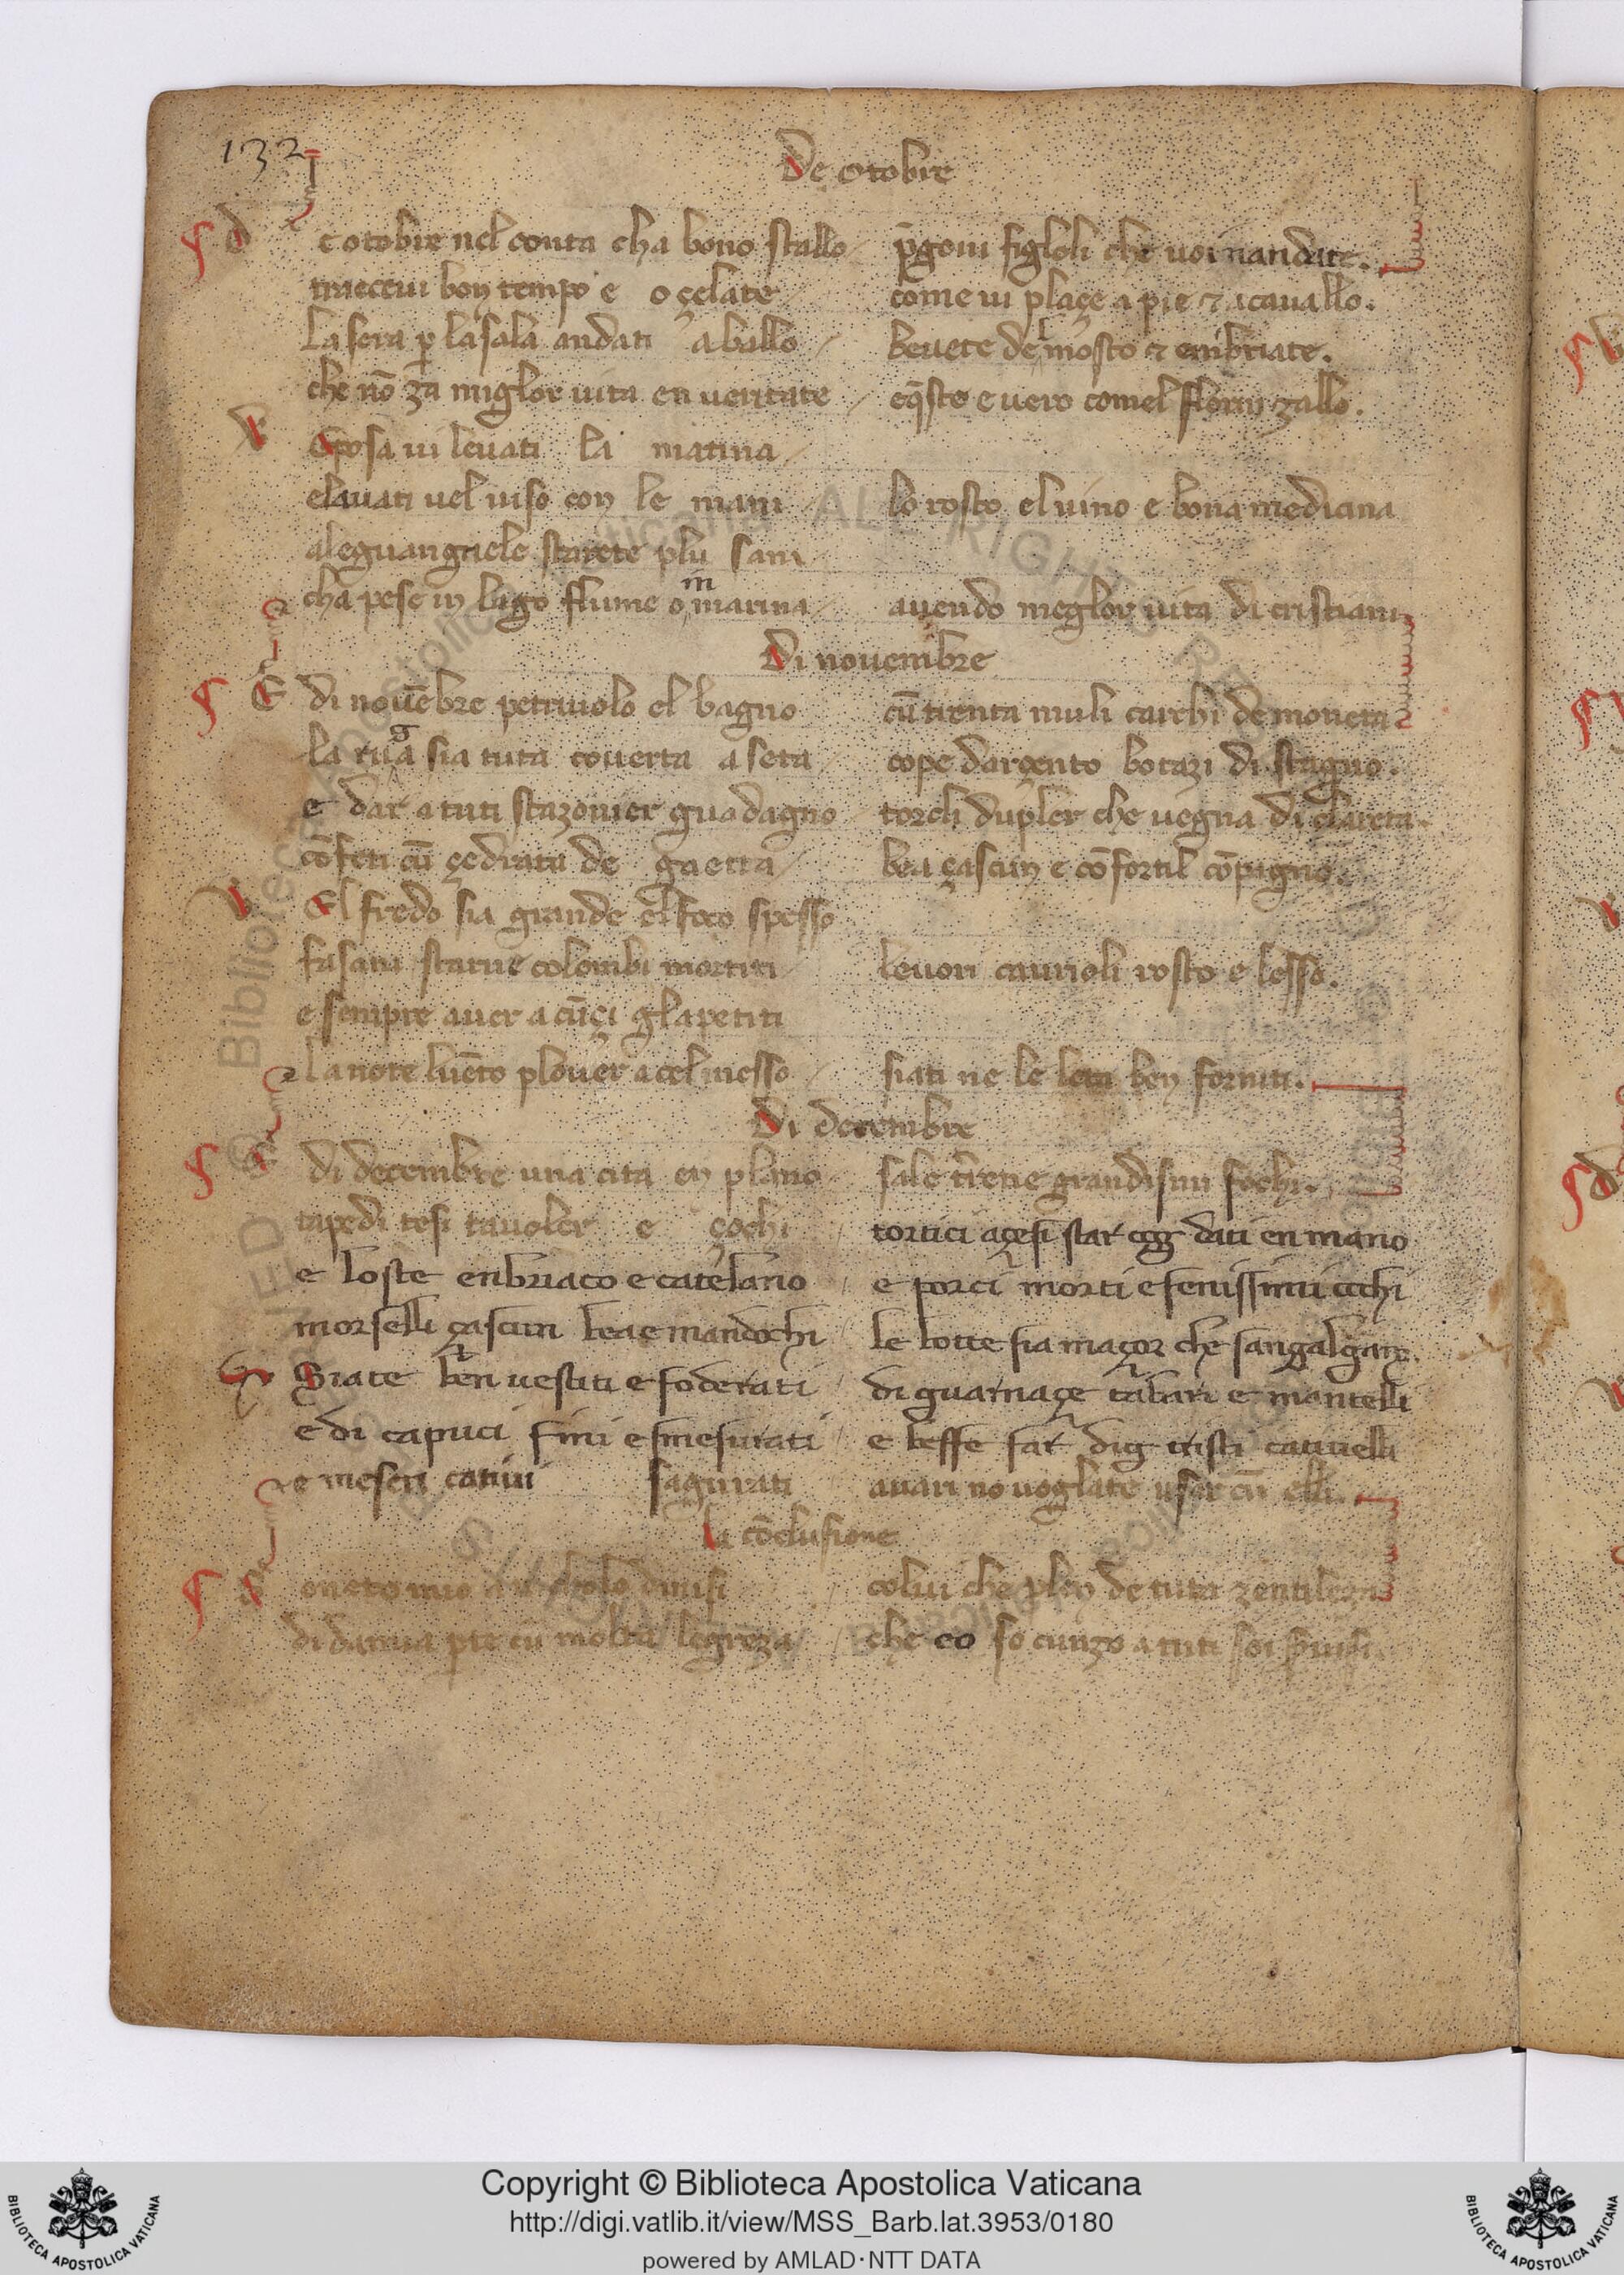 132
De otobre
d e otobre nel conta cha bono stallo p̄goui figloli che uoi nandate.
traeceui bon tempo e oçelate come ui plaçe a pie ⁊ acauallo.
La sera p̱ la sala andati aballo beuete del mosto ⁊ enbriate.
che nō za miglor uita en ueritate eq̄sto e uero comel florin zallo.
E posa ui leuati la matina
elauati uel uiso con le mani lo rosto el uino e bona medicina
aleguangnele starete plu sani
cha pese in lago flume o in marina auendo meglor uita di cristiani
Di nouembre
E di nouēbre petriuolo el bagno cū trenta muli carchi de moneta
la ruga sia tuta couerta a seta cope dargento botazi di stagno.
e dar a tuti stazonier guadagno torchi dupler che uegna di clareta.
cōfeti cū çedrata de gaetta bea çascun e cōfortil cōpagno.
El fredo sia grande el foco spesso
fasani starne colombi mortiti leuori caurioli rosto e lesso.
e sempre auer acūçi glapetiti
la note luēto plouer acel messo siati ne le leta ben forniti.
Di decembre
E di decembre una cita en plano sale trēne grandisimi fochi.
tapedi tesi tauoler e çochi tortici açesi star cog dati en mano
e loste enbriaco e catelano e porci morti e fenissimi cochi
morselli çascun bea e mandochi le botte sia maçor che sangalgano.
Siate ben uestiti e foderati di guarnaçe tabari e mantelli
e di capuci fini e smesurati e beffe far dig tristi catiuelli
e meseri catiui sagurati auari no uoglate usar cū elli.
la cōclusione
S oneto mio colui che plen de tuta zentileza
di da mia pte cū molta legreza che eo so cunzo a tuti soi
Copyright © Biblioteca Apostolica Vaticana
http://digi.vatlib.it/view/MSS_Barb.lat.3953/0180
powered by AMLAD·NTT DATA
BIBLIOTECA APOSTOLICA VATICANA
BIBLIOTECA APOSTOLICA VATICANA